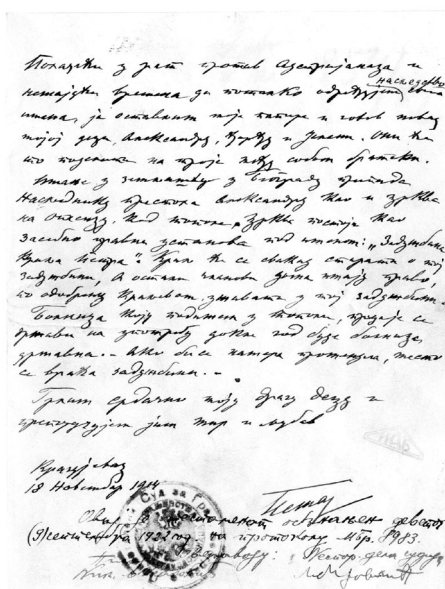 Полазећи у рат против Аустријанаца и
немајући времена да потанко одредим наследство
имена, ја остављам моје папире и готов новац
мојој деци, Александру, Ђорђу и Јелени. Они ће
то поделити на троје међу собом братски.
Имање у земљишту у Београду припада
Наследнику престола Александру као и црква
на Опленцу. Код Тополе, Црква постоји као
засебна правна установа под именом: „Задужбина
Краља Петра“. Краљ ће се свакад старати о тој
задужбини, а остали чланови дома имају право,
по одобрењу Краљевом, у тој задужбини.
Болница коју подигох у Тополи, предаје се
држави на употребу докле год буде болница
државна. – Ако би се намера променила, место
се враћа задужбини. –
Грлим срдачно моју драгу децу и
препоручујем јим мир и љубав
Крагујевац
18 Новембар 1914
Петар
Овај тестамент обзнањен деветог
(9) септембра 1922 год. по протоколу Мбр. 8983.